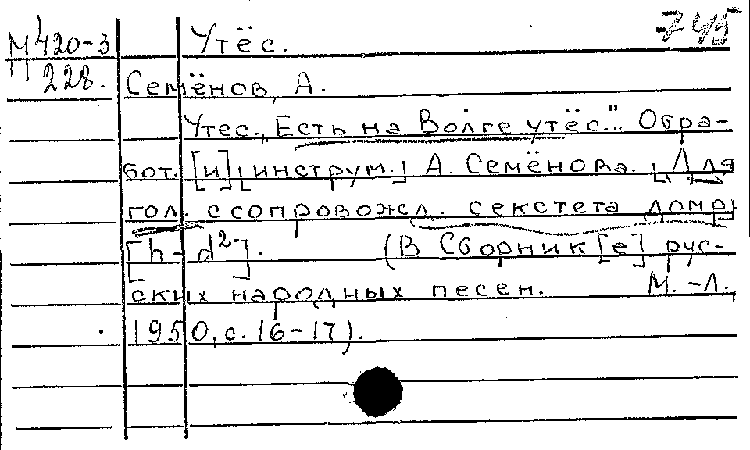 М 420-3 Утёс. 745
228. Семёнов, А.
Утес. „Есть на Волге утёс." Обра-
бот. [и] [инструм.] А. Семёнова. [Для
гол. с сопровожд. секстета домр]
[h - d²]. (В Сборник[е] рус-
ских народных песен. М.-Л.,
1950, с. 16-17).